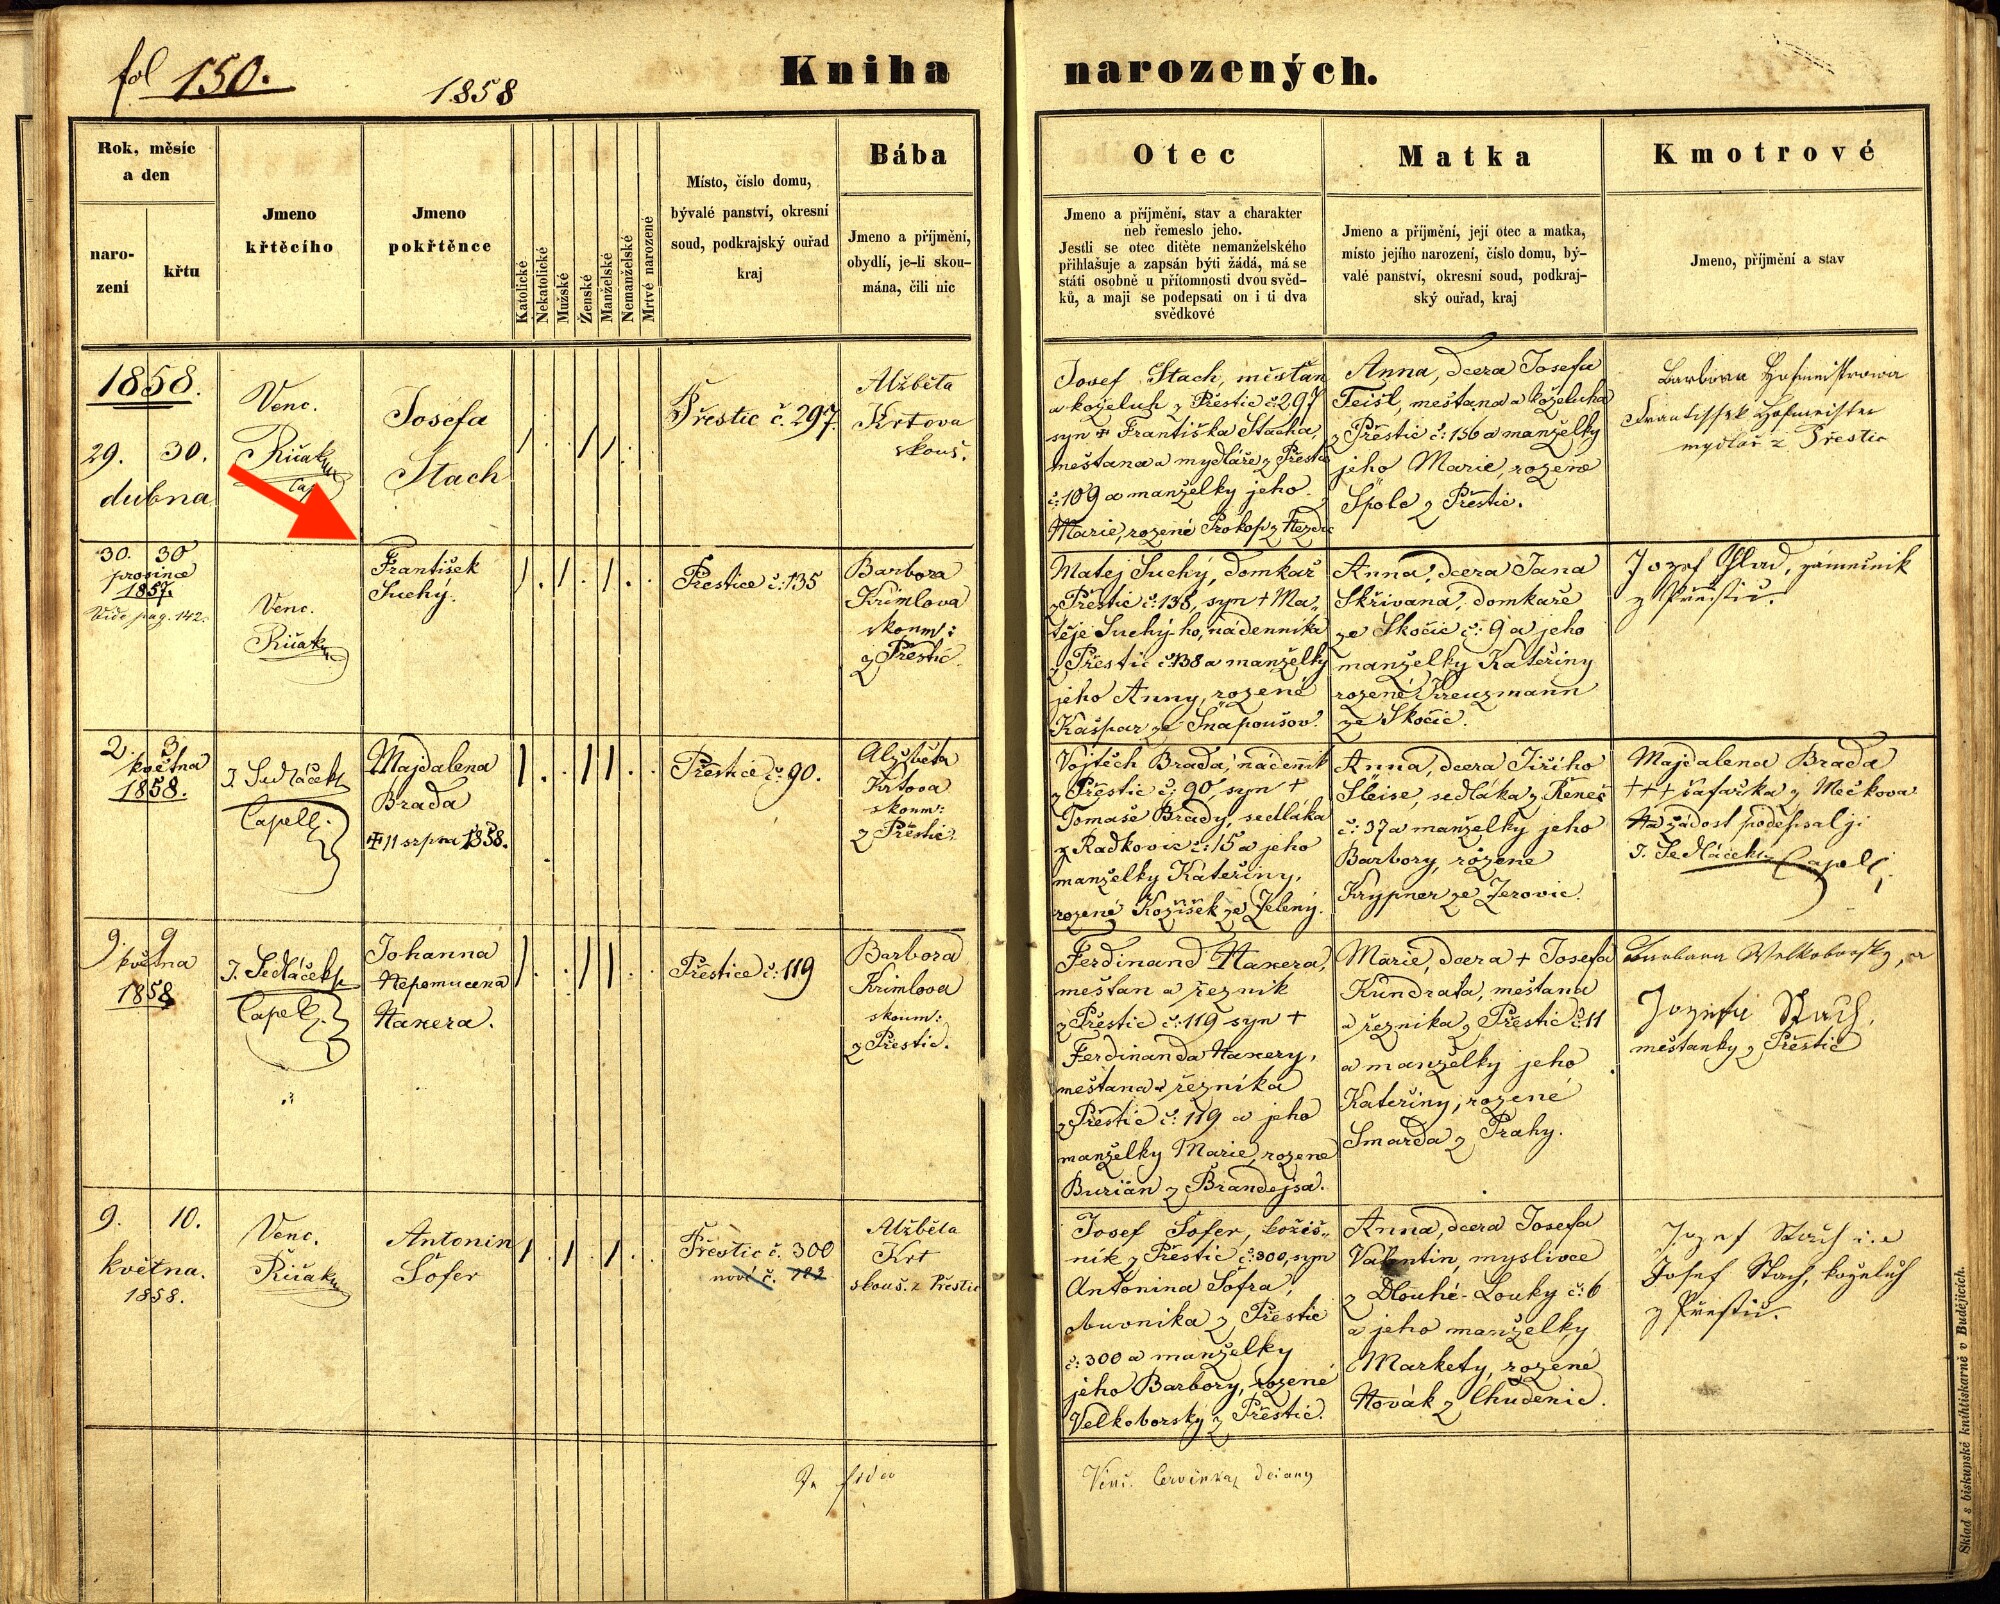 fol 150.
1858
Kniha
narozených.
Rok, měsíc
a den
naro-
zení
křtu
Jmeno
křtěcího
Jmeno
pokřtěnce
Katolické
Nekatolické
Mužské
Ženské
Manželské
Nemanželské
Mrtvé narozené
Místo, číslo domu,
bývalé panství, okresní
soud, podkrajský ouřad
kraj
Bába
Jmeno a příjmění,
obydlí, je-li skou-
mána, čili nic
Otec
Jmeno a příjmění, stav a charakter
neb řemeslo jeho.
Jestli se otec dítěte nemanželského
přihlašuje a zapsán býti žádá, má se
státi osobně u přítomnosti dvou svěd-
ků, a mají se podepsati on i ti dva
svědkové
Matka
Jmeno a příjmění, její otec a matka,
místo jejího narození, číslo domu, bý-
valé panství, okresní soud, podkraj-
ský ouřad, kraj
Kmotrové
Jmeno, příjmění a stav
1858.
29. 30.
dubna
Venc.
Josefa
Stach
Přestic č. 297.
Alžběta
Krtova
skouš.
Josef Stach, měsťan
a koželuh z Přestic č. 297
syn + Františka Stacha,
mešťana a mydláře z Přestic
č: 109 a manželky jeho
Marie, rozené Prokop z
Anna, dcera Josefa
Teisl, mešťana a koželuha
z Přestic č: 156 a manželky
jeho Marie, rozené
Spolc z Přestic.
Barbora Hofmeistrowa
Frantisschek Hofmeister
mydlář z Přestic
30. 30
prosince
1857.
Vide pag. 142.
Venc.
František
Suchý.
Přestice č: 135
Barbora
Krimlova
skoum:
z Přestic.
Matěj Suchý, domkař
z Přestic č: 138, syn + Ma-
těje Suchý-ho, nádenníka
z Přestic č: 138 a manželky
jeho Anny, rozené
Kašpar ze Snapoušov.
Anna, dcera Jana
Skřivana, domkaře
ze Skočic č: 9 a jeho
manželky Kateřiny
rozené Kreuzmann
ze Skočic.
Jozef zámečnik
z Přestic.
2. 3
května
1858.
J. Sedláček
Capell.
Majdalena
Brada
+ 11 srpna 1858.
Přestice č: 90.
Alžběta
Krtova
skoum:
z Přestic.
Vojtěch Brada, nádenník
z Přestic č: 90, syn +
Tomaše Brady, sedláka
z Radkovic č: 15 a jeho
manželky Kateřiny,
rozené Kožíšek ze Zelený.
Anna, dcera Jiřího
Šleise, sedláka z Řeneč
č: 37 a manželky jeho
Barbory, rozené
Krypner ze Zerovic.
Majdalena Brada
+++ šafařka z Mečkova
Na žádost podepsal ji
J. Sedláček Capell.
9. 9
května
1858
J. Sedláček
Capell.
Johanna
Nepomucena
Haxera.
Přestice č: 119
Barbora
Krimlova
skoum:
z Přestic.
Ferdinand Haxera,
mešťan a řezník
z Přestic č: 119 syn +
Ferdinanda Haxery,
mešťana a řezníka
z Přestic č: 119 a jeho
manželky Marie, rozené
Burián z Brandejsa.
Marie, dcera + Josefa
Kundrata, mešťana
a řezníka z Přestic č: 11
a manželky jeho
Kateřiny, rozené
Smarda z Prahy.
Barbara Welkoborsky, a
Jozefa Stach,
mešťanky z Přestic
9. 10.
května.
1858.
Venc.
Antonin
Šofer
Přestic č. 300
nové č. 123
Alžběta
Krt
skouš. z Přestic
Josef Šofer, kožiš-
nik z Přestic č: 300, syn
Antonina Šofra,
obuvníka z Přestic
č: 300 a manželky
jeho Barbory, rozené
Velkoborský z Přestic.
Anna, dcera Josefa
Valentin, myslivce
z Dlouhé-Louky č: 6
a jeho manželky
Markety, rozené
Novák z Chudenic.
Jozef Stach
Josef Stach, koželuh
z Přestic.
In fidem
Sklad s biskupské knihtiskarně v Budějicích.